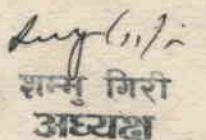 शम्भु गिरी
अध्यक्ष